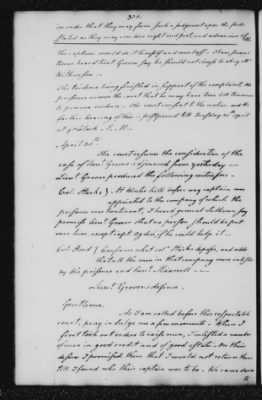 in order that they may form such a judgment upon the facts
stated as they may consider right and just, and adversion of the
the captain would do it himself and went off. These persons
heard Lieut Grover say he should not comply to
Wilkinson.
The evidence being finished in support of the complaint, the
prisoner moves the court that he may have time till tomorrow
to produce evidence. The court consent to the motion, and the
further hearing of this is postponed till Tuesday April
at 9 oClock, A.M.
April 30th.
The court resume the consideration of the
case of Lieut Grover adjourned from yesterday
Lieut Grover produced the following witnesses.
Col. Stark, } At Winter hill before any captain was
appointed to the company of which the
prisoner was lieutenant, I heard general Sullivan say
promise Lieut Grover that no person should be put
over him except capt. Ogden, if he could help it.
Col. Reed } Confirms what col Stark deposes, and adds
that all the men in that company were enlisted
by the prisoner and Lieut. Maxwell
Lieut Grover's defence.
Gentlemen,
As I am called before this respectable
court, pray indulge me a few moments. When I
first took out orders to raise men, I inlisted a number
of men in good credit and of good estate. On their
desire I promised them that I would not return them
till I found who their captain was to be. We came down
to